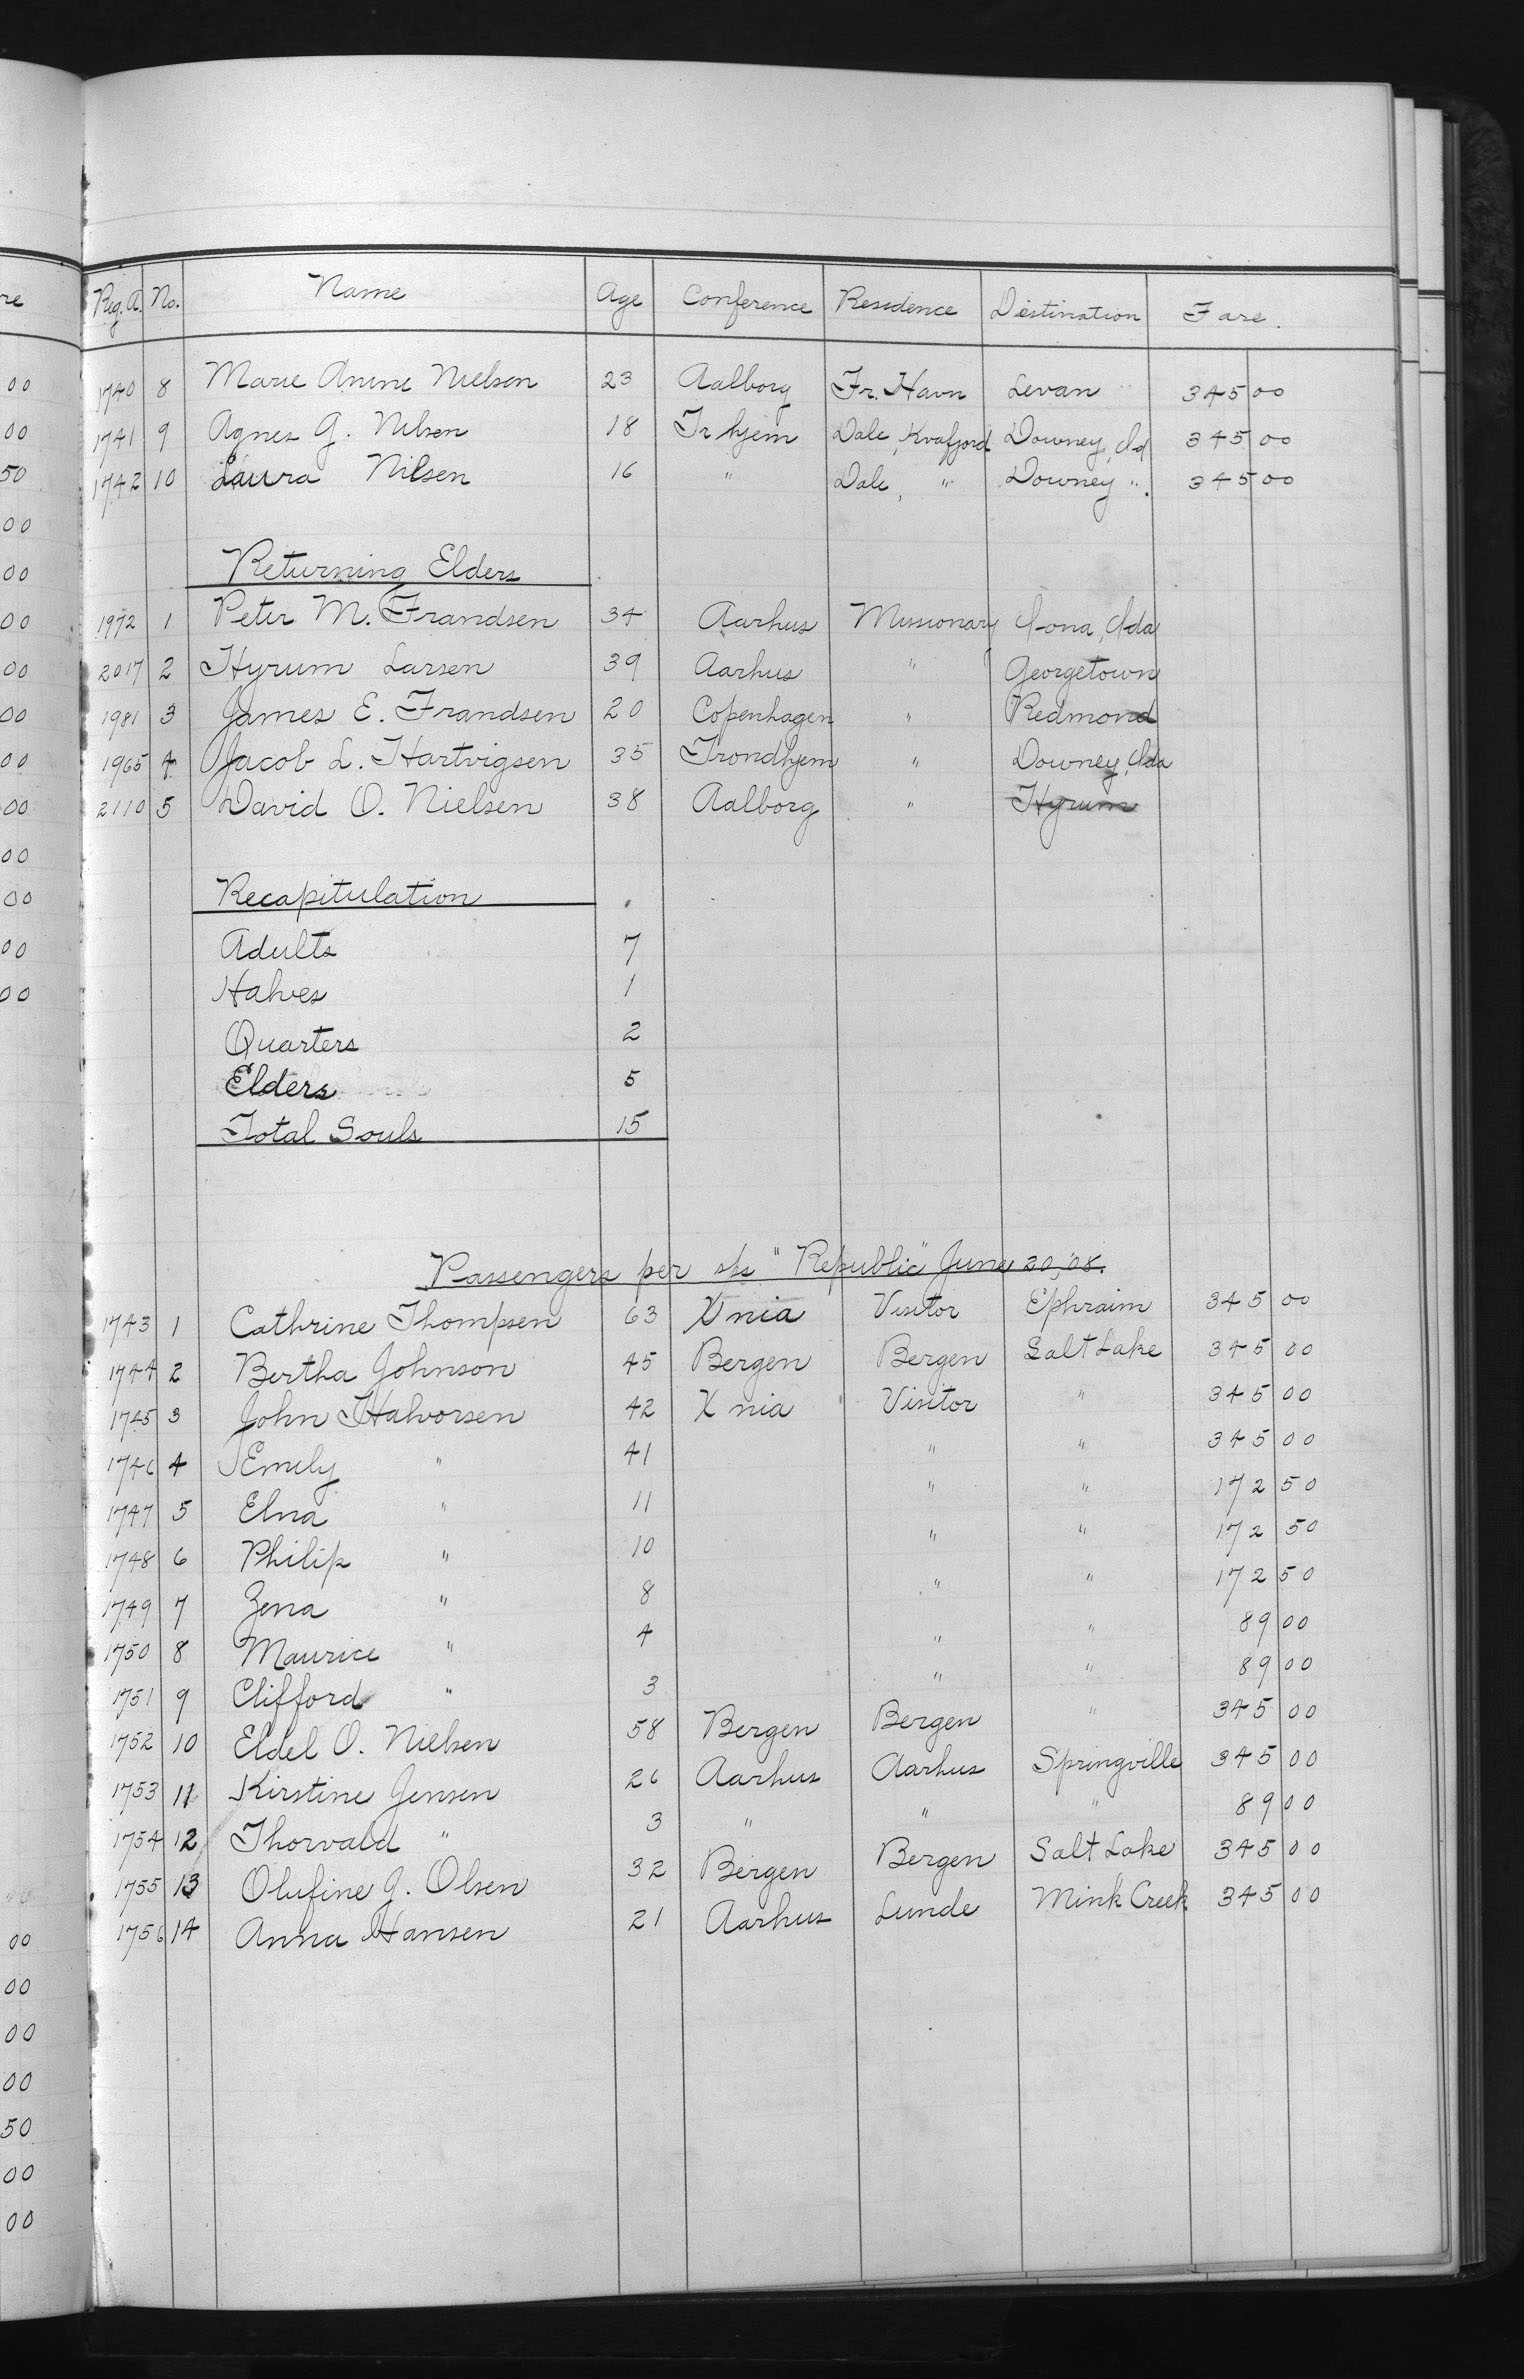 Reg. A. No. Name Age Conference Residence Destination Fare.
1740 8 Marie Anine Nielsen 23 Aalborg Fr. Havn Levan 345 00
1741 9 Agnes G. Nilsen 18 Tr hjem Dale, Kvafjord Downey, Id 345 00
1742 10 Laura Nilsen 16 " Dale, " Downey ". 345 00
Returning Elders
1972 1 Peter M. Frandsen 34 Aarhus Missionary Iona, Ida
2017 2 Hyrum Larsen 39 Aarhus " Georgetown
1981 3 James E. Frandsen 20 Copenhagen " Redmond
1965 4 Jacob L. Hartvigsen 35 Trondhjem " Downey, Ida
2110 5 David O. Nielsen 38 Aalborg " Hyrum
Recapitulation
Adults 7
Halves 1
Quarters 2
Elders 5
Total Souls 15
Passengers per s/s "Republic" June 20, '08.
1743 1 Cathrine Thompsen 63 Xnia Visitor Ephraim 345 00
1744 2 Bertha Johnson 45 Bergen Bergen Salt Lake 345 00
1745 3 John Halvorsen 42 Xnia Visitor " 345 00
1746 4 Emily " 41 " " 345 00
1747 5 Elna " 11 " " 172 50
1748 6 Philip " 10 " " 172 50
1749 7 Zena " 8 " " 172 50
1750 8 Maurice " 4 " " 89 00
1751 9 Clifford " 3 " " 89 00
1752 10 Eldel O. Nielsen 58 Bergen Bergen " 345 00
1753 11 Kirstine Jensen 26 Aarhus Aarhus Springville 345 00
1754 12 Thorvald " 3 " " " 89 00
1755 13 Olufine J. Olsen 32 Bergen Bergen Salt Lake 345 00
1756 14 Anna Hansen 21 Aarhus Lunde Mink Creek 345 00